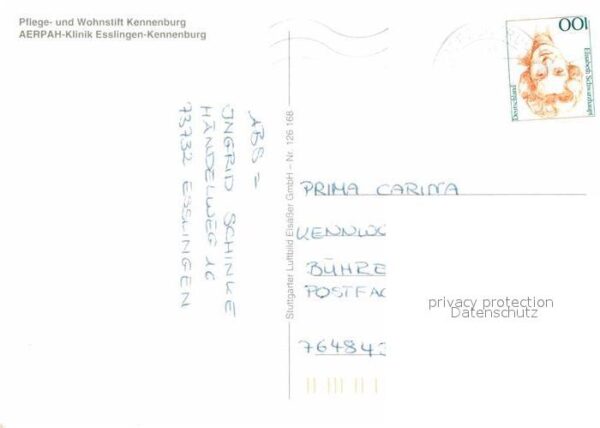 Pflege- und Wohnstift Kennenburg
AERPAH-Klinik Esslingen-Kennenburg
100
Elisabeth Schwarzhaupt
Deutschland
ABS =
INGRID SCHINKE
HÄNDELWEG 10
73732 ESSLINGEN
Stuttgarter Luftbild Elsäßer GmbH – Nr. 126 168
PRIMA CARINA
KENNWO
BÜHRE
POSTFAC
76484
privacy protection
Datenschutz